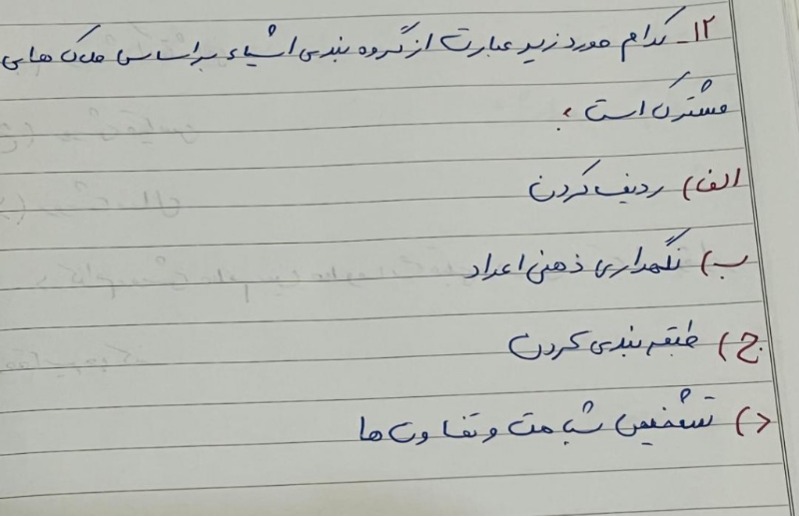 ۱۲- کدام مورد زیر عبارت از گروه بندی اشیاء براساس ملاک هایی
مشترک است :
الف) ردیف کردن
ب) نگهداری ذهنی اعداد
ج) طبقه بندی کردن
د) تشخیص شباهت و تفاوت ها